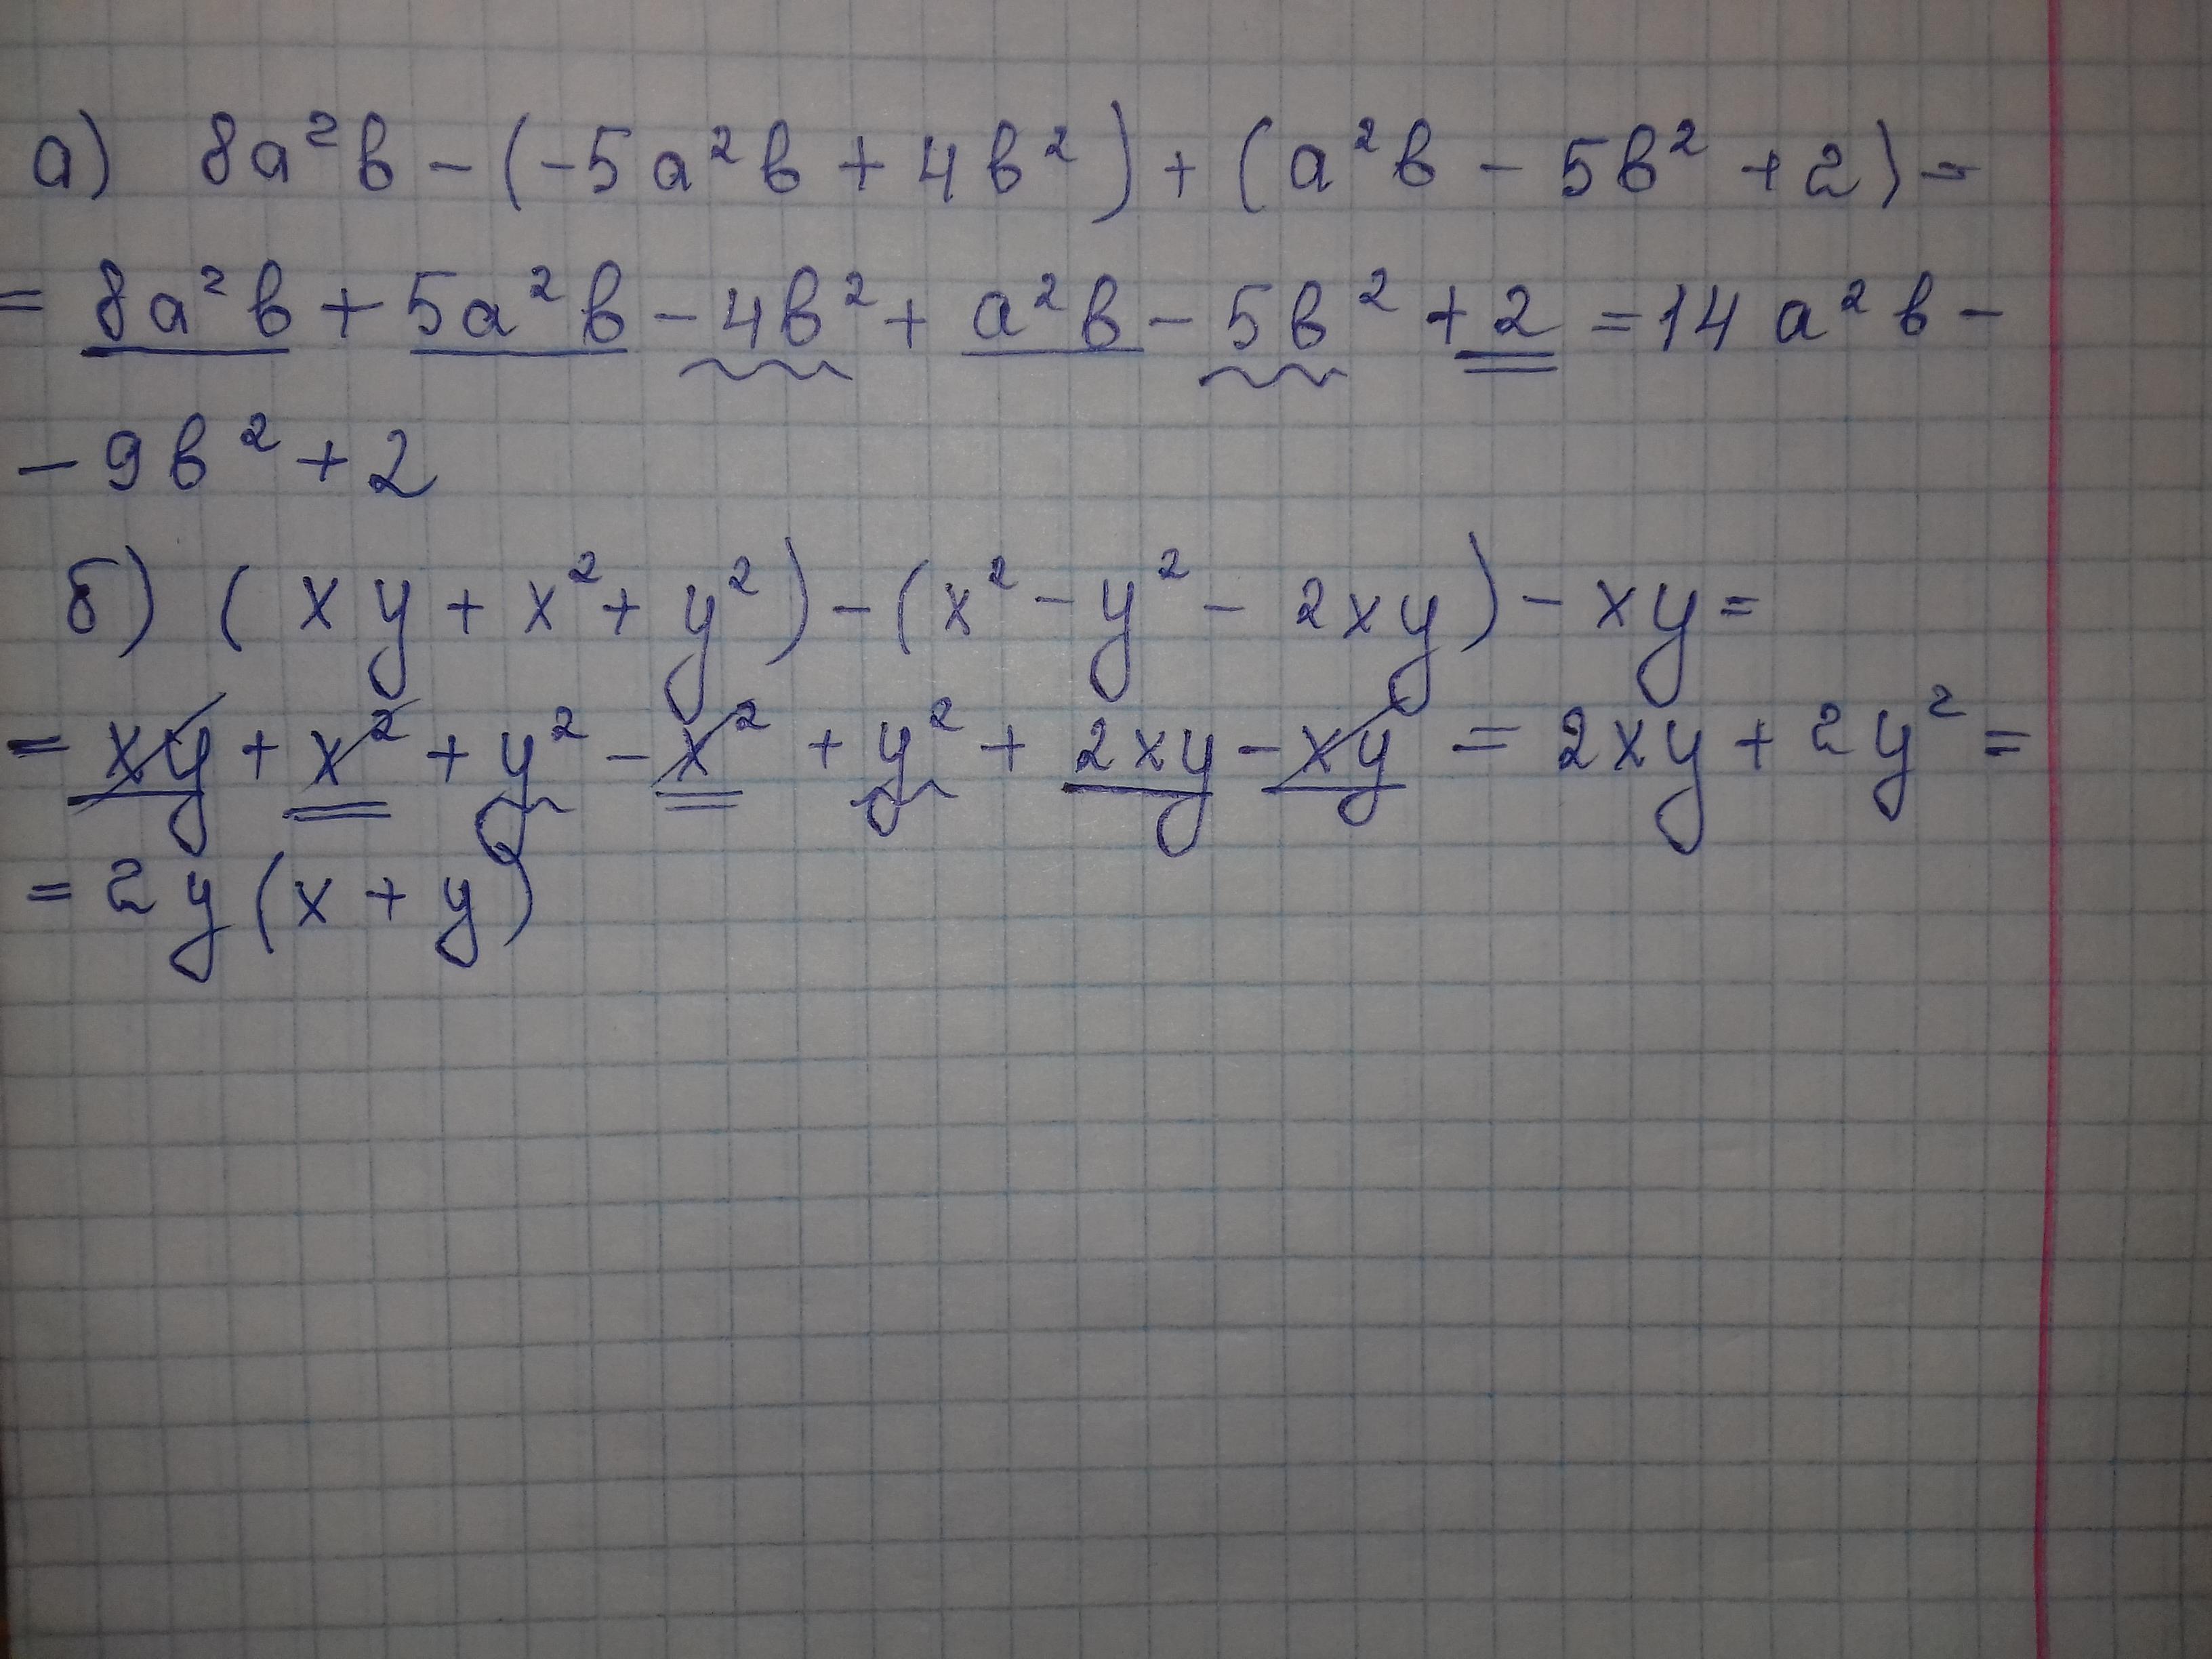 а) 8a²b - (-5a²b + 4b²) + (a²b - 5b² + 2) =
= 8a²b + 5a²b - 4b² + a²b - 5b² + 2 = 14a²b -
- 9b² + 2
б) (xy + x² + y²) - (x² - y² - 2xy) - xy =
= xy + x² + y² - x² + y² + 2xy - xy = 2xy + 2y² =
= 2y(x + y)